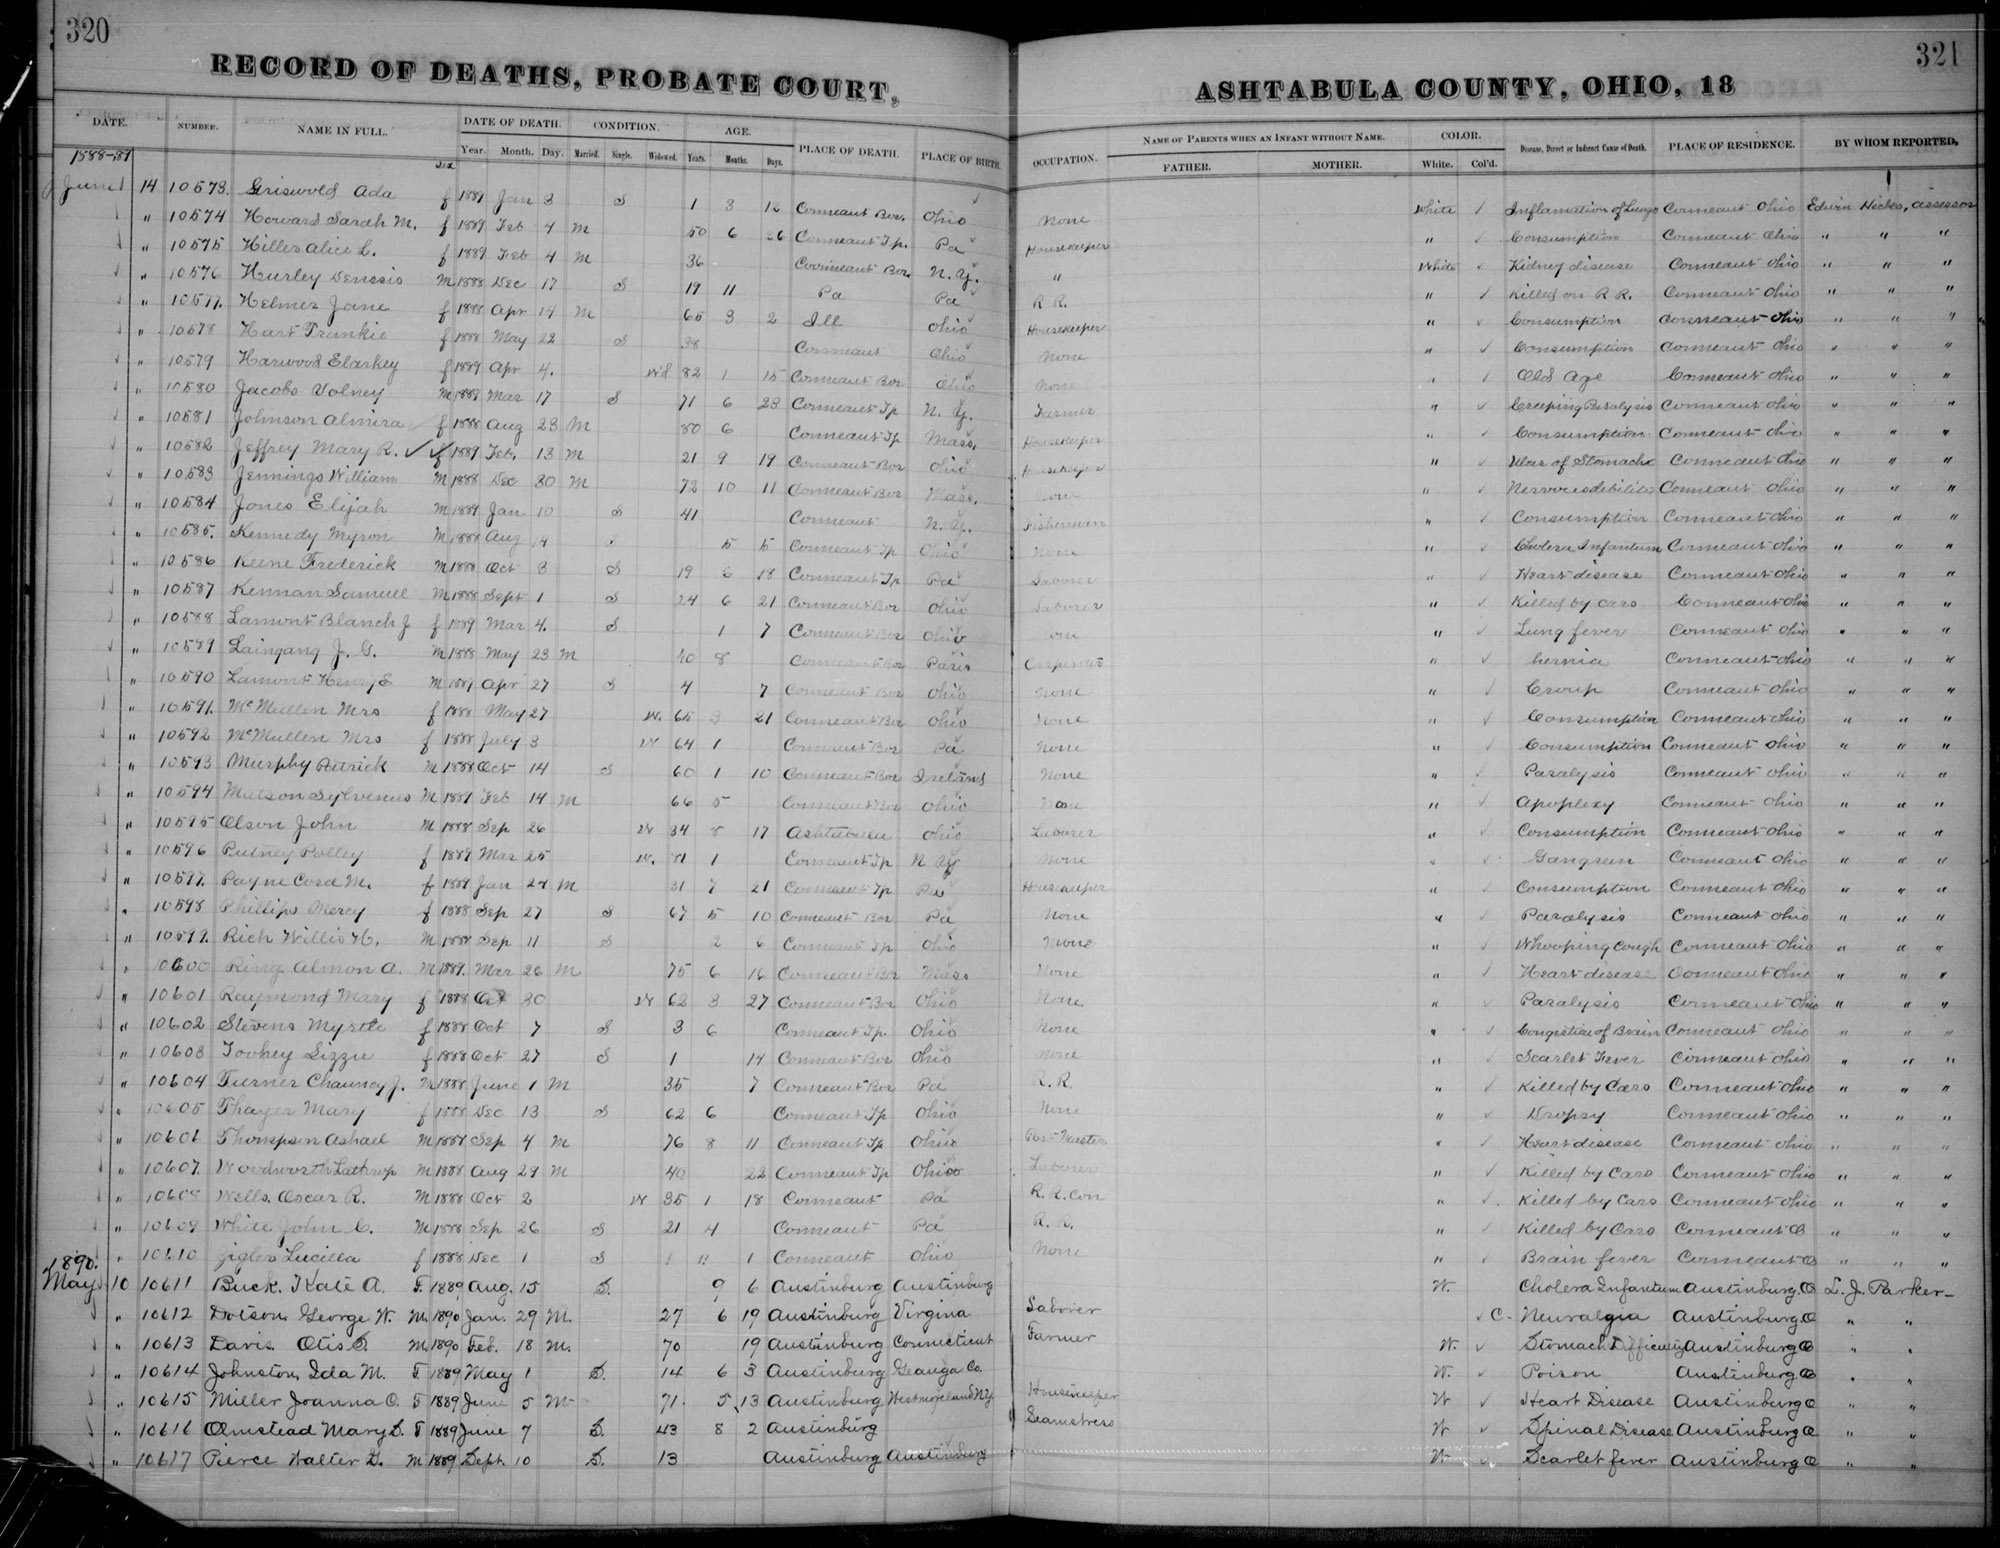 320
RECORD OF DEATHS, PROBATE COURT,
DATE. NUMBER. NAME IN FULL. DATE OF DEATH. CONDITION. AGE. PLACE OF DEATH. PLACE OF BIRTH.
Sex Year. Month. Day. Married. Single. Widowed. Years. Months. Days.
1888-89
June 14 10573. Griswold Ada f 1889 Jan 3 S 1 3 12 Conneaut Bor. Ohio
" 10574 Howard Sarah M. f 1889 Feb 4 M 50 6 26 Conneaut Tp. Pa
" 10575 Hiller Alice L. f 1889 Feb 4 M 36 Conneaut Bor. N. Y.
" 10576 Hurley Dennsis M 1888 Dec 17 S 19 11 Pa Pa
" 10577. Helmer Jane f 1888 Apr 14 M 65 3 2 Ill Ohio
" 10578 Hart Frankie f 1888 May 22 S 38 Conneaut Ohio
" 10579 Harwood Elarkey f 1889 Apr 4. Wd 82 1 15 Conneaut Bor Ohio
" 10580 Jacobs Volney M 1889 Mar 17 S 71 6 23 Conneaut Tp N. Y.
" 10581 Johnson Almira f 1888 Aug 23 M 80 6 Conneaut Tp Mass.
" 10582 Jeffrey Mary R. f 1889 Feb. 13 M 21 9 19 Conneaut Bor Ohio
" 10583 Jennings William M 1888 Dec 30 M 72 10 11 Conneaut Bor Mass.
" 10584 Jones Elijah M 1889 Jan 10 S 41 Conneaut N. Y.
" 10585. Kennedy Myron M 1888 Aug 14 S 5 5 Conneaut Tp Ohio
" 10586 Keene Frederick M 1888 Oct 3 S 19 6 18 Conneaut Tp Pa
" 10587 Kennan Samuel M 1888 Sept 1 S 24 6 21 Conneaut Bor Ohio
" 10588 Lamont Blanch J f 1889 Mar 4. S 1 7 Conneaut Bor Ohio
" 10589 Laingang J. G. M 1888 May 23 M 40 8 Conneaut Bor Paris
" 10590 Lamont Henry E M 1889 Apr 27 S 4 7 Conneaut Bor Ohio
" 10591. McMullen Mrs f 1888 May 27 W. 65 3 21 Conneaut Bor Ohio
" 10592 McMullen Mrs f 1888 July 3 W 64 1 Conneaut Bor Pa
" 10593 Murphy Patrick M 1888 Oct 14 S 60 1 10 Conneaut Bor Ireland
" 10594 Matson Sylvenus M 1889 Feb 14 M 66 5 Conneaut Bor Ohio
" 10595 Olson John M 1888 Sep 26 W 34 8 17 Ashtabula Ohio
" 10596 Putney Polley f 1889 Mar 25 W. 81 1 Conneaut Tp N Y
" 10597. Payne Cora M. f 1889 Jan 24 M 31 7 21 Conneaut Tp Pa
" 10598 Phillips Mercy f 1888 Sep 27 S 67 5 10 Conneaut Bor Pa
" 10599. Rich Willis H. M 1888 Sep 11 S 2 6 Conneaut Tp Ohio
" 10600 Ring Almon A. M 1889. Mar 26 M 75 6 16 Conneaut Bor Mass
" 10601 Raymond Mary f 1888 Oct 30 W 62 3 27 Conneaut Bor Ohio
" 10602 Stevens Myrtle f 1888 Oct 7 S 3 6 Conneaut Tp. Ohio
" 10603 Toohey Lizzie f 1888 Oct 27 S 1 14 Conneaut Bor Ohio
" 10604 Turner Chauncy J. M 1888 June 1 M 35 7 Conneaut Bor Pa
" 10605 Thayer Mary f 1888 Dec 13 S 62 6 Conneaut Tp Ohio
" 10606 Thompson Ashael M 1888 Sep 4 M 76 8 11 Conneaut Tp Ohio
" 10607. Woodworth Lathrop M 1888 Aug 29 M 40 22 Conneaut Tp Ohio
" 10608 Wells. Oscar R. M 1888 Oct 2 W 35 1 18 Conneaut Pa
" 10609 White John C. M 1888 Sep 26 S 21 4 Conneaut Pa
" 10610 Zigler Lucilla f 1888 Dec 1 S 1 11 1 Conneaut Ohio
1890.
May 10 10611 Buck. Kate A. F. 1889 Aug. 15 S. 9 6 Austinburg Austinburg
" 10612 Dotson, George W. M. 1890 Jan. 29 M. 27 6 19 Austinburg Virgina
" 10613 Davis. Otis S. M 1890 Feb. 18 M. 70 19 Austinburg Connecticut
" 10614 Johnston, Ida M. F. 1889 May 1 S. 14 6 3 Austinburg Geauga Co.
" 10615 Miller Joanna O. F 1889 June 5 M 71. 5 13 Austinburg Westmoreland N.Y.
" 10616 Olmstead Mary D. F 1889 June 7 S. 43 8 2 Austinburg
" 10617 Pierce Walter D. M 1889 Sept. 10 S. 13 Austinburg Austinburg
321
ASHTABULA COUNTY, OHIO, 18
OCCUPATION. NAME OF PARENTS WHEN AN INFANT WITHOUT NAME. COLOR. Disease, Direct or Indirect Cause of Death. PLACE OF RESIDENCE. BY WHOM REPORTED.
FATHER. MOTHER. White. Col'd.
None White Inflamation of Lungs Conneaut Ohio Edwin Hicks, Assessor
Housekeeper " Consumption Conneaut Ohio " " "
" White Kidney disease Conneaut Ohio " " "
R R. " Killed on R R. Conneaut Ohio " " "
Housekeeper " Consumption Conneaut Ohio " " "
None " Consumption Conneaut Ohio " " "
None " Old Age Conneaut Ohio " " "
Farmer " Creeping Paralysis Conneaut Ohio " " "
Housekeeper " Consumption Conneaut Ohio " " "
Housekeeper " Ulcer of Stomache Conneaut Ohio " " "
None " Nervous debility Conneaut Ohio " " "
Fisherman " Consumption Conneaut Ohio " " "
None " Cholera Infantum Conneaut Ohio " " "
Laborer " Heart disease Conneaut Ohio " " "
Laborer " Killed by cars Conneaut Ohio " " "
None " Lung fever Conneaut Ohio " " "
Carpenter " hernia Conneaut Ohio " " "
None " Croup Conneaut Ohio " " "
None " Consumption Conneaut Ohio " " "
None " Consumption Conneaut Ohio " " "
None " Paralysis Conneaut Ohio " " "
None " Apoplexy Conneaut Ohio " " "
Laborer " Consumption Conneaut Ohio " " "
None " Gangreen Conneaut Ohio " " "
Housekeeper " Consumption Conneaut Ohio " " "
None " Paralysis Conneaut Ohio " " "
None " Whooping Cough Conneaut Ohio " " "
None " Heart disease Conneaut Ohio " " "
None " Paralysis Conneaut Ohio " " "
None " Congestion of Brain Conneaut Ohio " " "
None " Scarlet Fever Conneaut Ohio " " "
R. R. " Killed by Cars Conneaut Ohio " " "
None " Dropsy Conneaut Ohio " " "
Post Master " Heart disease Conneaut Ohio " " "
Laborer " Killed by Cars Conneaut Ohio " " "
R. R. Con " Killed by Cars Conneaut Ohio " " "
R. R. " Killed by Cars Conneaut O " " "
None " Brain fever Conneaut O " " "
W. Cholera Infantum Austinburg O L. J. Parker
Laborer C. Neuralgia Austinburg O " "
Farmer W. Stomach Difficulty Austinburg O " "
W. Poison Austinburg O " "
Housekeeper W Heart Disease Austinburg O " "
Seamstress W Spinal Disease Austinburg O " "
W Scarlet fever Austinburg O " "